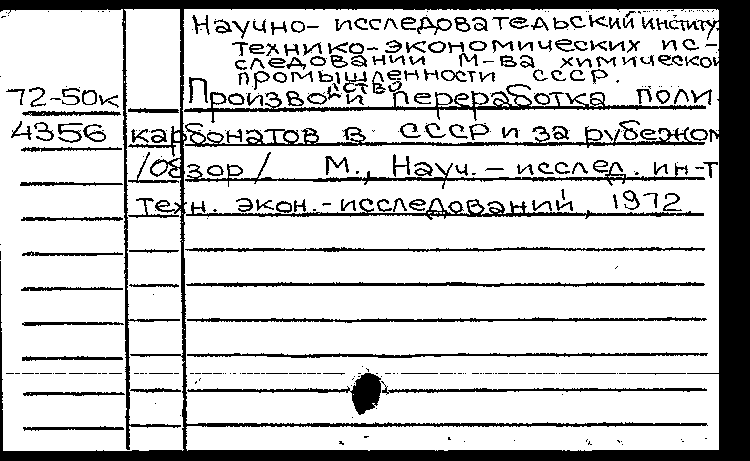 Научно- исследовательский институ
технико-экономических ис-
следований М-ва химической
промышленности СССР.
72-50к Производство и переработка поли-
4356 карбонатов в СССР и за рубежом
/Обзор/ М., Науч.-исслед. ин-т
техн. экон.-исследований, 1972